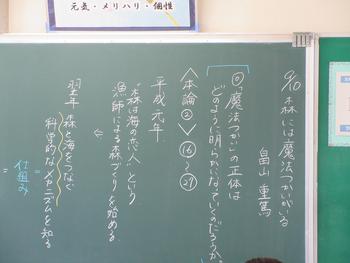 元気・メリハリ・個性
9/10 森には魔法つかいがいる
畠山 重篤
◎「魔法つかい」の正体は
どのように明らかになっていくのだろうか。
〈本論②〉⑯〜㉗
平成元年
"森は海の恋人"という
漁師による森づくりを始める
⇓
翌年 森と海をつなぐ
科学的なメカニズムを知る
=
仕組み
=